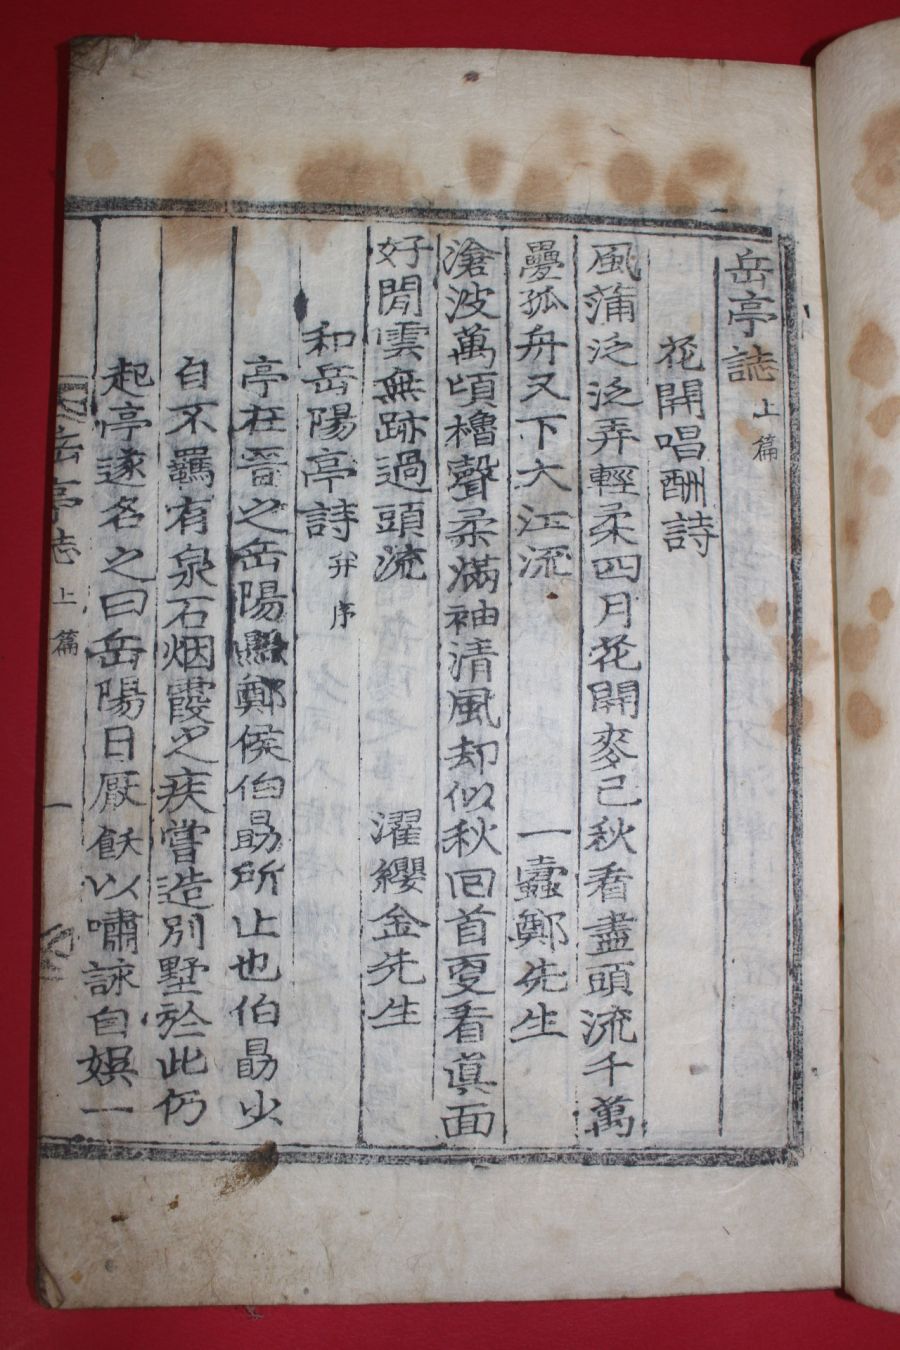 岳亭誌 上篇
花開唱酬詩
風蒲泛泛弄輕柔四月花開麥已秋看盡頭流千萬
疊孤舟又下大江流 一蠹鄭先生
滄波萬頃櫓聲柔滿袖清風却似秋回首更看眞面
好閒雲無跡過頭流 濯纓金先生
和岳陽亭詩 幷序
亭在晉之岳陽縣鄭侯伯勗所止也伯勗少
自不羈有泉石烟霞之疾嘗造別墅於此仍
起亭遂名之曰岳陽日厭飫以嘯詠自娛一
岳亭誌 上篇 一